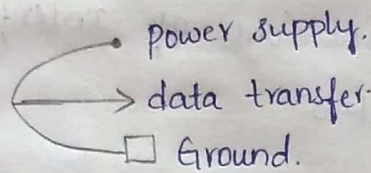 power supply.
data transfer.
Ground.